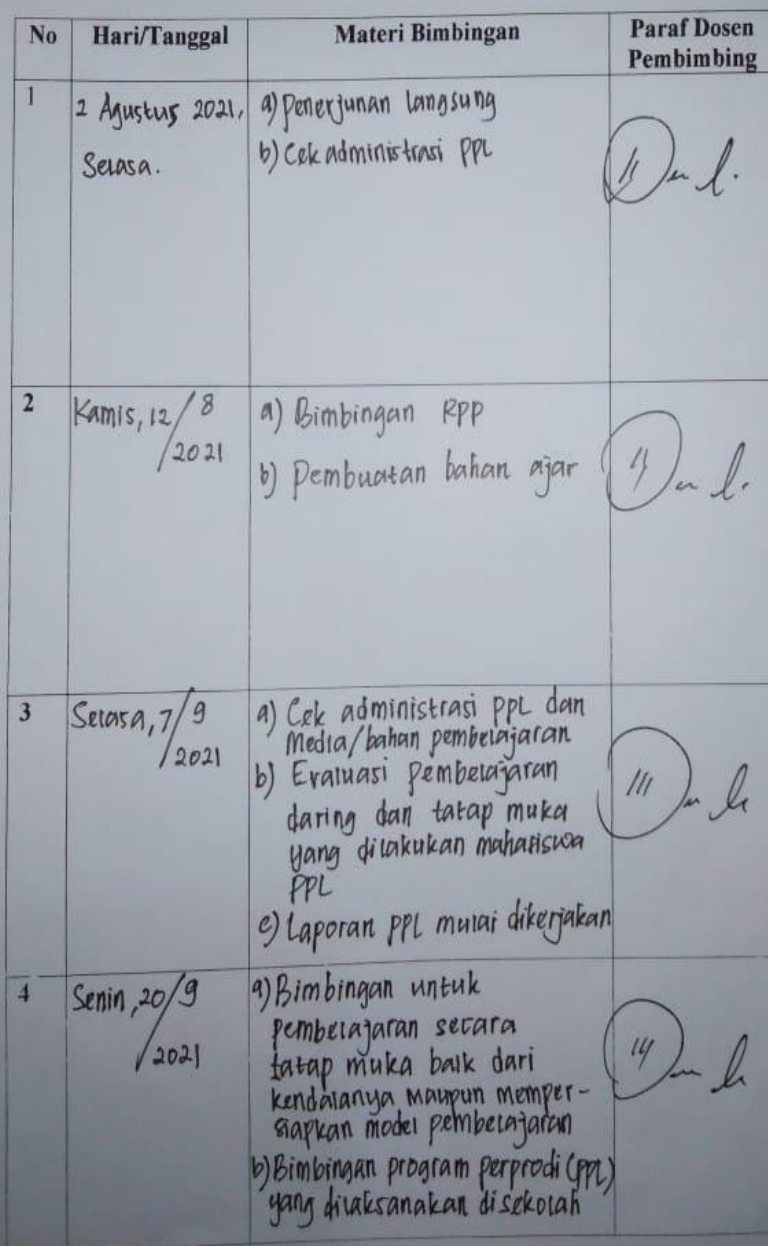 No Hari/Tanggal Materi Bimbingan Paraf Dosen
Pembimbing
1 2 Agustus 2021, a) Penerjunan langsung
Selasa. b) Cek administrasi PPL
2 Kamis, 12/8 a) Bimbingan RPP
/2021 b) Pembuatan bahan ajar
3 Selasa, 7/9 a) Cek administrasi PPL dan
/2021 Media/bahan pembelajaran
b) Evaluasi pembelajaran
daring dan tatap muka
yang dilakukan mahasiswa
PPL
c) Laporan PPL mulai dikerjakan
4 Senin, 20/9 a) Bimbingan untuk
/2021 pembelajaran secara
tatap muka baik dari
kendalanya maupun memper-
siapkan model pembelajaran
b) Bimbingan program perprodi (PPL)
yang dilaksanakan disekolah